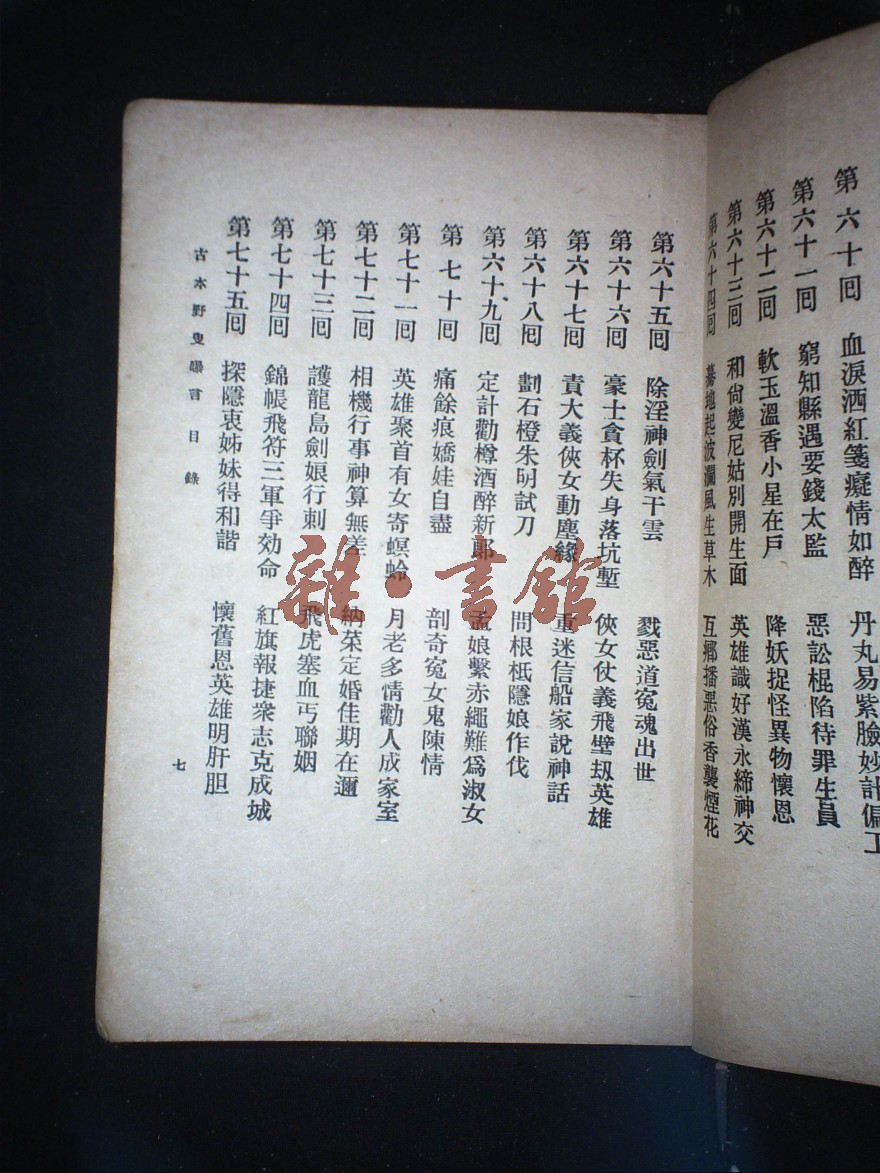 第六十回 血淚洒紅箋癡情如醉 丹丸易紫臉妙計偏工
第六十一回 窮知縣遇要錢太監 惡訟棍陷待罪生員
第六十二回 軟玉溫香小星在戶 降妖捉怪異物懷恩
第六十三回 和尙變尼姑別開生面 英雄識好漢永締神交
第六十四回 驀地起波瀾風生草木 互鄉播惡俗香襲煙花
第六十五回 除淫神劍氣干雲 戮惡道冤魂出世
第六十六回 豪士貪杯失身落坑塹 俠女仗義飛壁刼英雄
第六十七回 責大義俠女動塵緣 重迷信船家說神話
第六十八回 劃石橙朱明試刀 問根柢隱娘作伐
第六十九回 定計勸樽酒醉新郞 孟娘繫赤繩難爲淑女
第七十回 痛餘痕嬌娃自盡 剖奇冤女鬼陳情
第七十一回 英雄聚首有女寄螟蛉 月老多情勸人成家室
第七十二回 相機行事神算無差 納菜定婚佳期在邇
第七十三回 護龍島劍娘行刺 飛虎塞血丐聯姻
第七十四回 錦帳飛符三軍爭効命 紅旗報捷衆志克成城
第七十五回 探隱衷姊妹得和諧 懷舊恩英雄明肝胆
古本野叟曝言 目錄
七
雜·書館